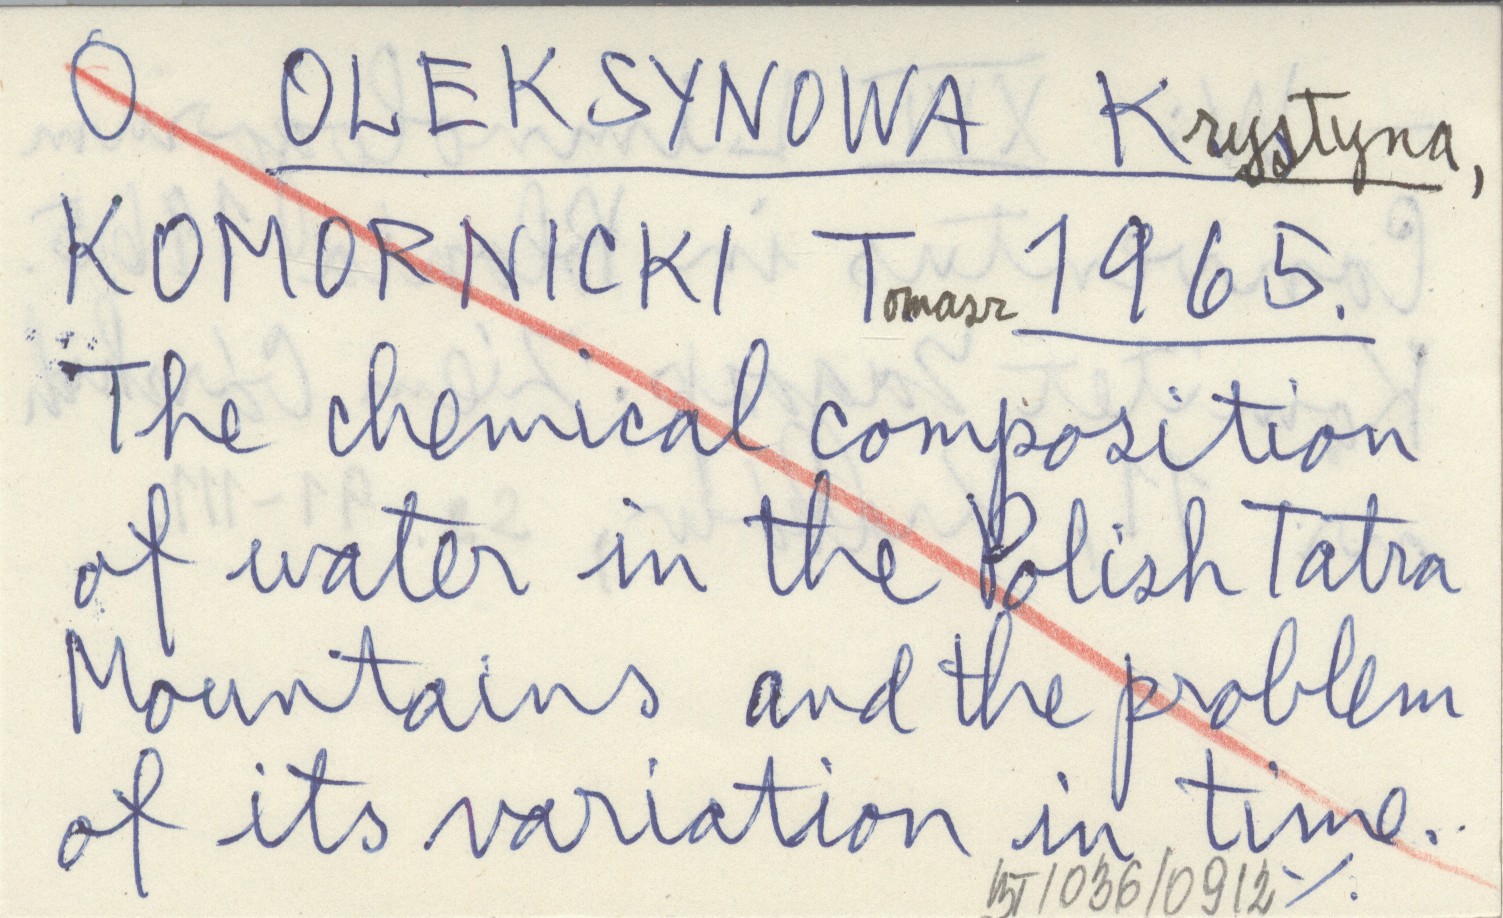 O OLEKSYNOWA Krystyna,
KOMORNICKI Tomasz 1965.
The chemical composition
of water in the Polish Tatra
Mountains and the problem
of its variation in time.
BT/036/0912 ·/.